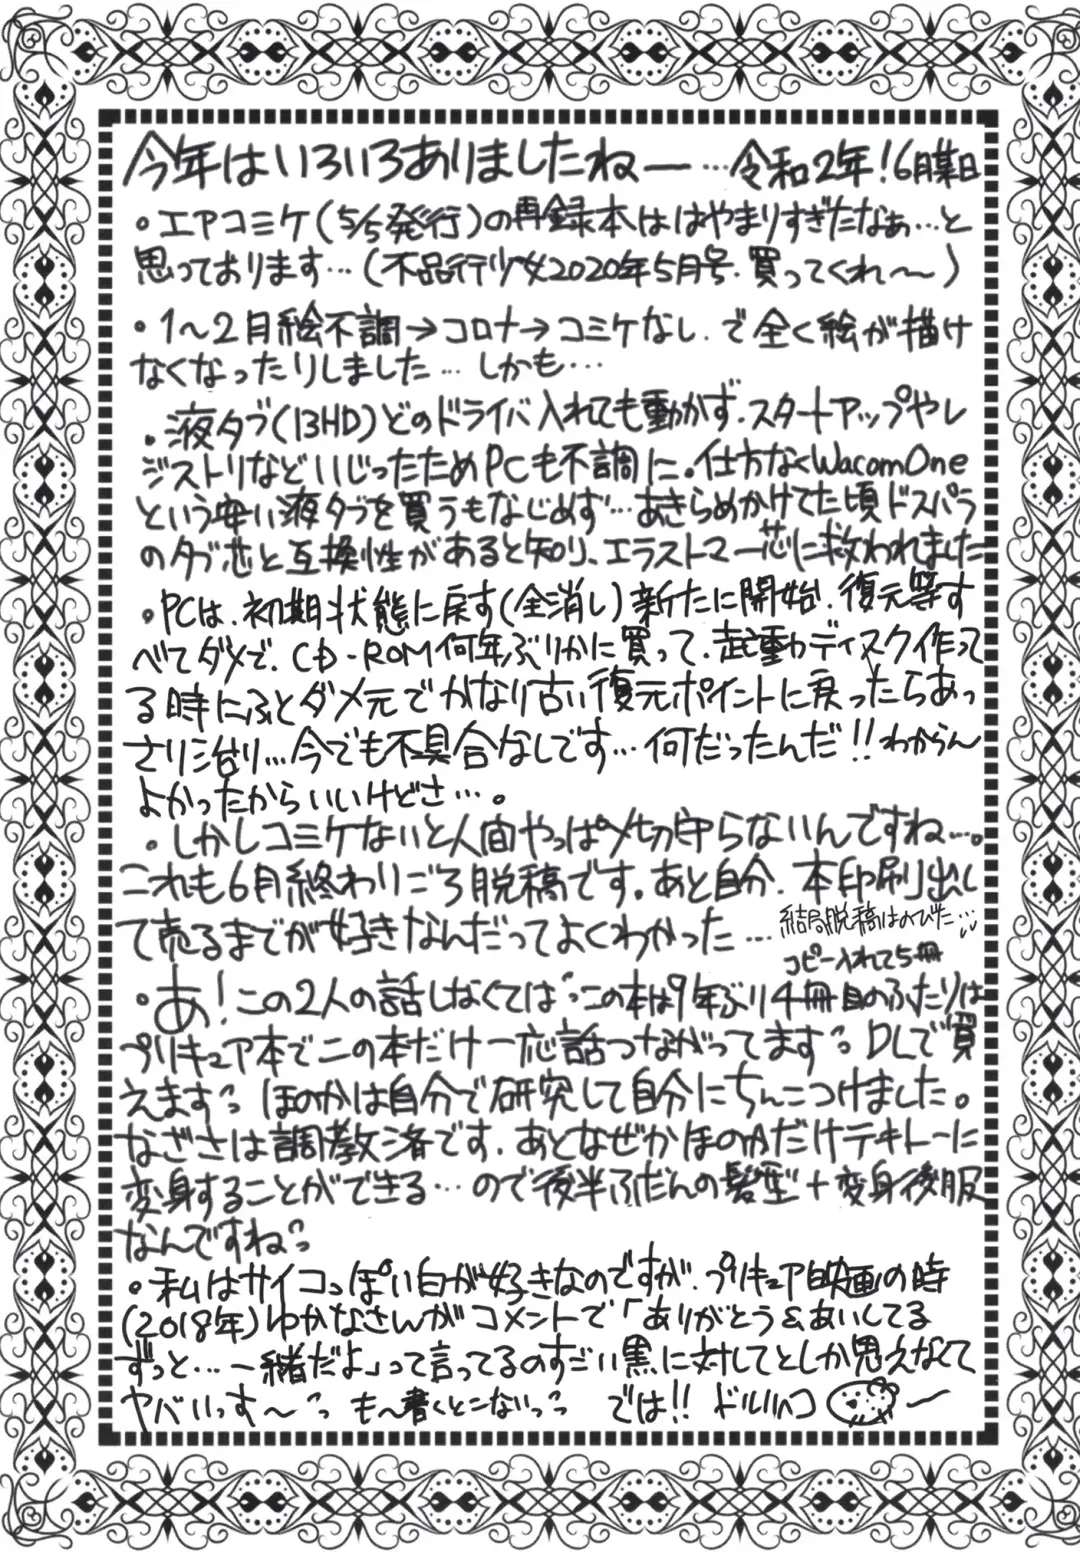 今年はいろいろありましたねー…令和2年!6月某日
。エアコミケ(5/5発行)の再録本ははやまりすぎたなぁ…と
思っております…(不品行少女2020年5月号.買ってくれ〜)
。1〜2月絵不調→コロナ→コミケなし.で全く絵が描け
なくなったりしました…しかも…
。液タブ(13HD)どのドライバ入れても動かず.スタートアップやレ
ジストリなどいじったためPCも不調に。仕方なくWacomOne
という安い液タブを買うもなじめず…あきらめかけてた頃ドスパラ
のタブ芯と互換性があると知り、エラストマー芯に救われました
。PCは、初期状態に戻す(全消し)新たに開始.復元等す
べてダメで.CD-ROM何年ぶりかに買って.起動ディスク作って
る時にふとダメ元でかなり古い復元ポイントに戻ったらあっ
さり治り…今でも不具合なしです…何だったんだ!!わからん
よかったからいいけどさ…。
。しかしコミケないと人間やっぱ〆切守らないんですね…。
これも6月終わりごろ脱稿です。あと自分.本印刷出し
て売るまでが好きなんだってよくわかった…
結局脱稿はのびた…
コピー入れて5冊
。あ!この2人の話しなくては この本は9年ぶり4冊目のふたりは
プリキュア本で二の本だけ一応話つながってます DLで買
えます ほのかは自分で研究して自分にちんこつけました。
なぎさは調教済です.あとなぜかほのかだけテキトーに
変身することができる…ので後半ふだんの髪型+変身後服
なんですね
。私はサイコっぽい白が好きなのですが.プリキュア映画の時
(2018年)ゆかなさんがコメントで「ありがとう&あいしてる
ずっと…一緒だよ」って言ってるのすごい黒に対してとしか思えなくて
ヤバいっす〜っ も〜書くとこないっっ では!! ドルリハコ